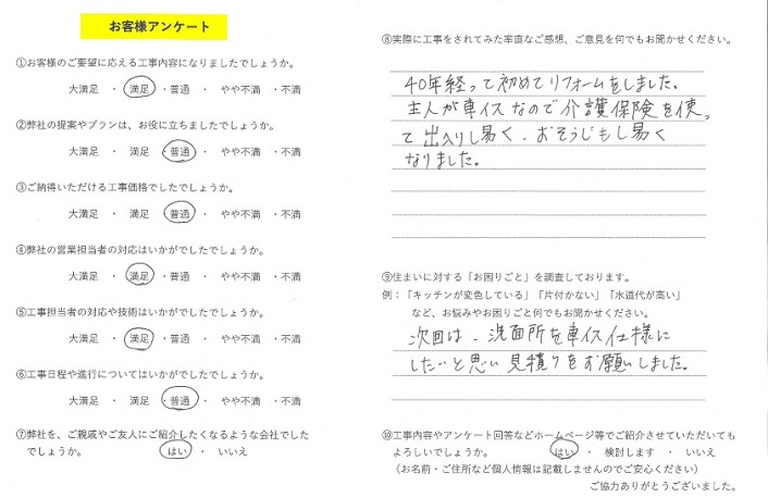 お客様アンケート
①お客様のご要望に応える工事内容になりましたでしょうか。
大満足 ・ 満足 ・普通 ・ やや不満 ・不満
②弊社の提案やプランは、お役に立ちましたでしょうか。
大満足 ・ 満足 ・普通 ・ やや不満 ・不満
③ご納得いただける工事価格でしたでしょうか。
大満足 ・ 満足 ・普通 ・ やや不満 ・不満
④弊社の営業担当者の対応はいかがでしたでしょうか。
大満足 ・ 満足 ・普通 ・ やや不満 ・不満
⑤工事担当者の対応や技術はいかがでしたでしょうか。
大満足 ・ 満足 ・普通 ・ やや不満 ・不満
⑥工事日程や進行についてはいかがでしたでしょうか。
大満足 ・ 満足 ・普通 ・ やや不満 ・不満
⑦弊社を、ご親戚やご友人にご紹介したくなるような会社でした
でしょうか。 はい ・ いいえ
⑧実際に工事をされてみた率直なご感想、ご意見を何でもお聞かせください。
40年経って初めてリフォームをしました。
主人が車イスなので介護保険を使っ
て出入りし易く、おそうじもし易く
なりました。
⑨住まいに対する「お困りごと」を調査しております。
例：「キッチンが変色している」「片付かない」「水道代が高い」
など、お悩みやお困りごと何でもお聞かせください。
次回は、洗面所を車イス仕様に
したいと思い見積りをお願いしました。
⑩工事内容やアンケート回答などホームページ等でご紹介させていただいても
よろしいでしょうか。 はい ・ 検討します ・ いいえ
（お名前・ご住所など個人情報は記載しませんのでご安心ください）
ご協力ありがとうございました。